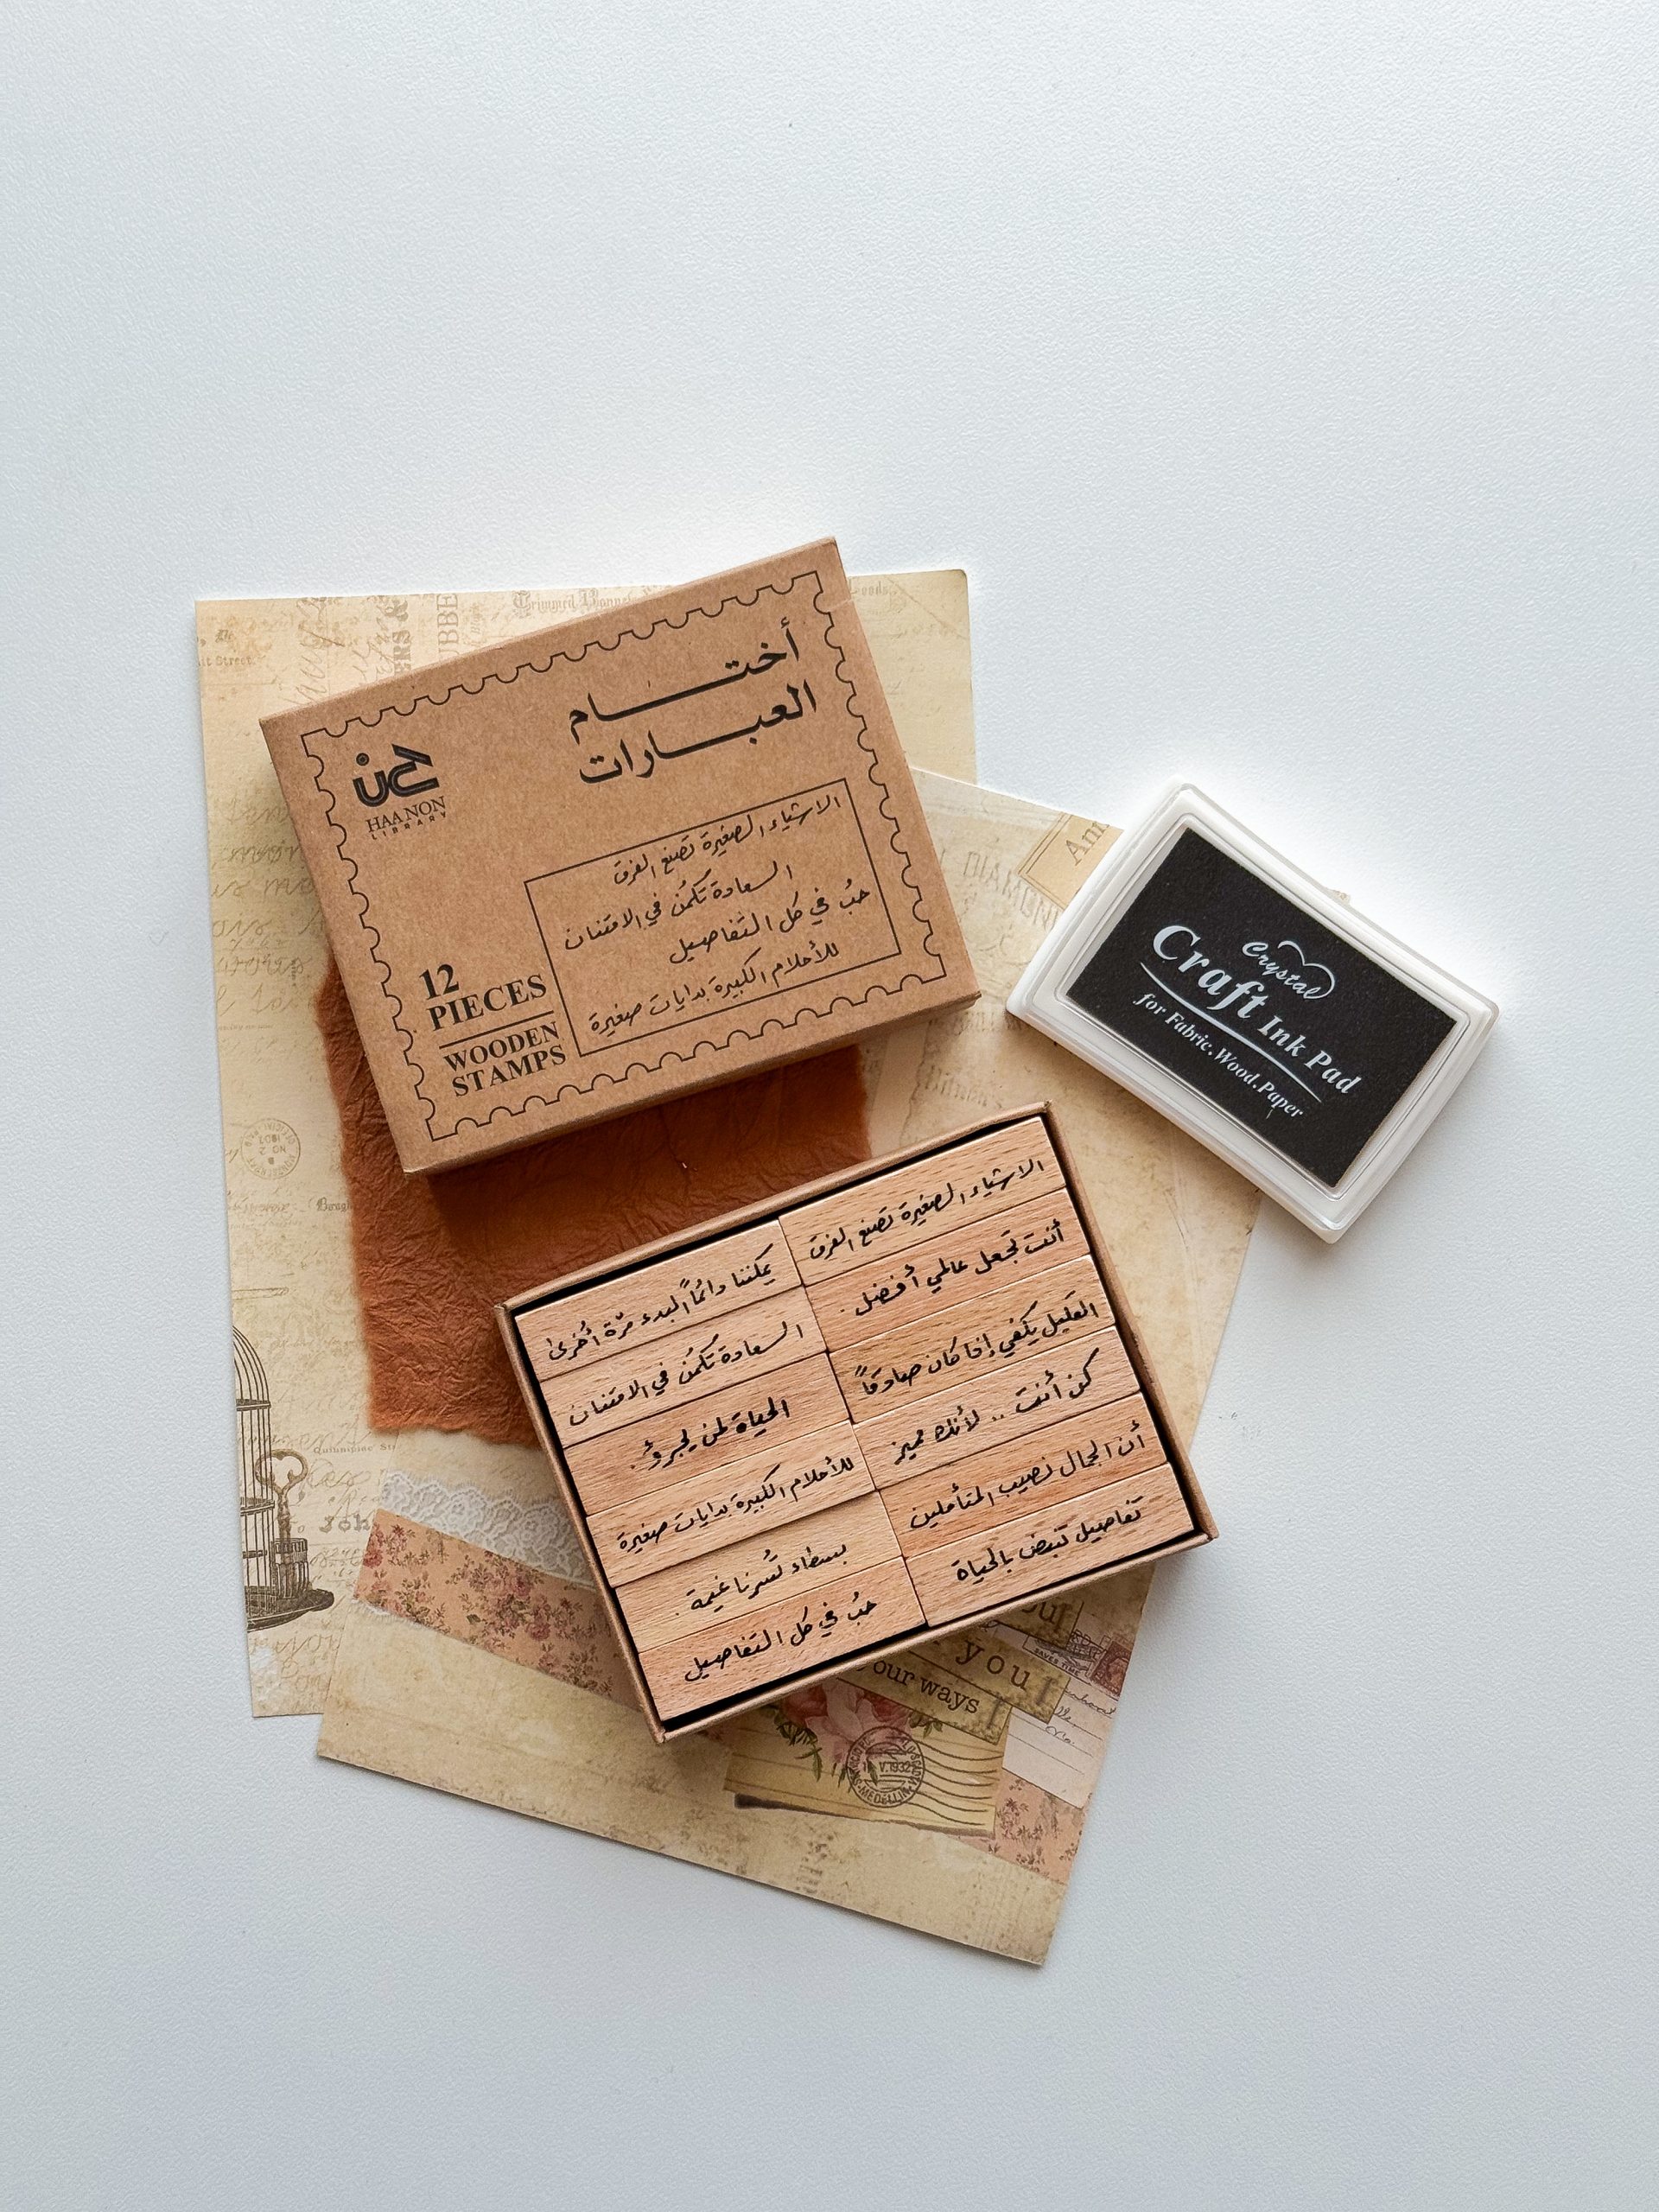 أختام
العبارات
حنن
HAANON
LIBRARY
الاشياء الصغيرة تصنع الفرق
السعادة تَكمُن في الامتنان
حبُ في كل التفاصيل
للأحلام الكبيرة بدايات صغيرة
12
PIECES
WOODEN
STAMPS
Crystal
Craft Ink Pad
for Fabric.Wood.Paper
الاشياء الصغيرة تصنع الفرق
أنت تجعل عالمي أفضل.
القليل يكفي إذا كان صادقاً
كن أنت .. لأنك مميز
أن الجمال نصيب المتأملين
تفاصيل تنبض بالحياة
يمكننا دائماً البدء مرّة أُخرى
السعادة تَكمُن في الامتنان
الحياة لمن يجرؤ.
للأحلام الكبيرة بدايات صغيرة
بسطاء تُسرنا غيمة.
حبُ في كل التفاصيل
you
our ways
MEDELLIN